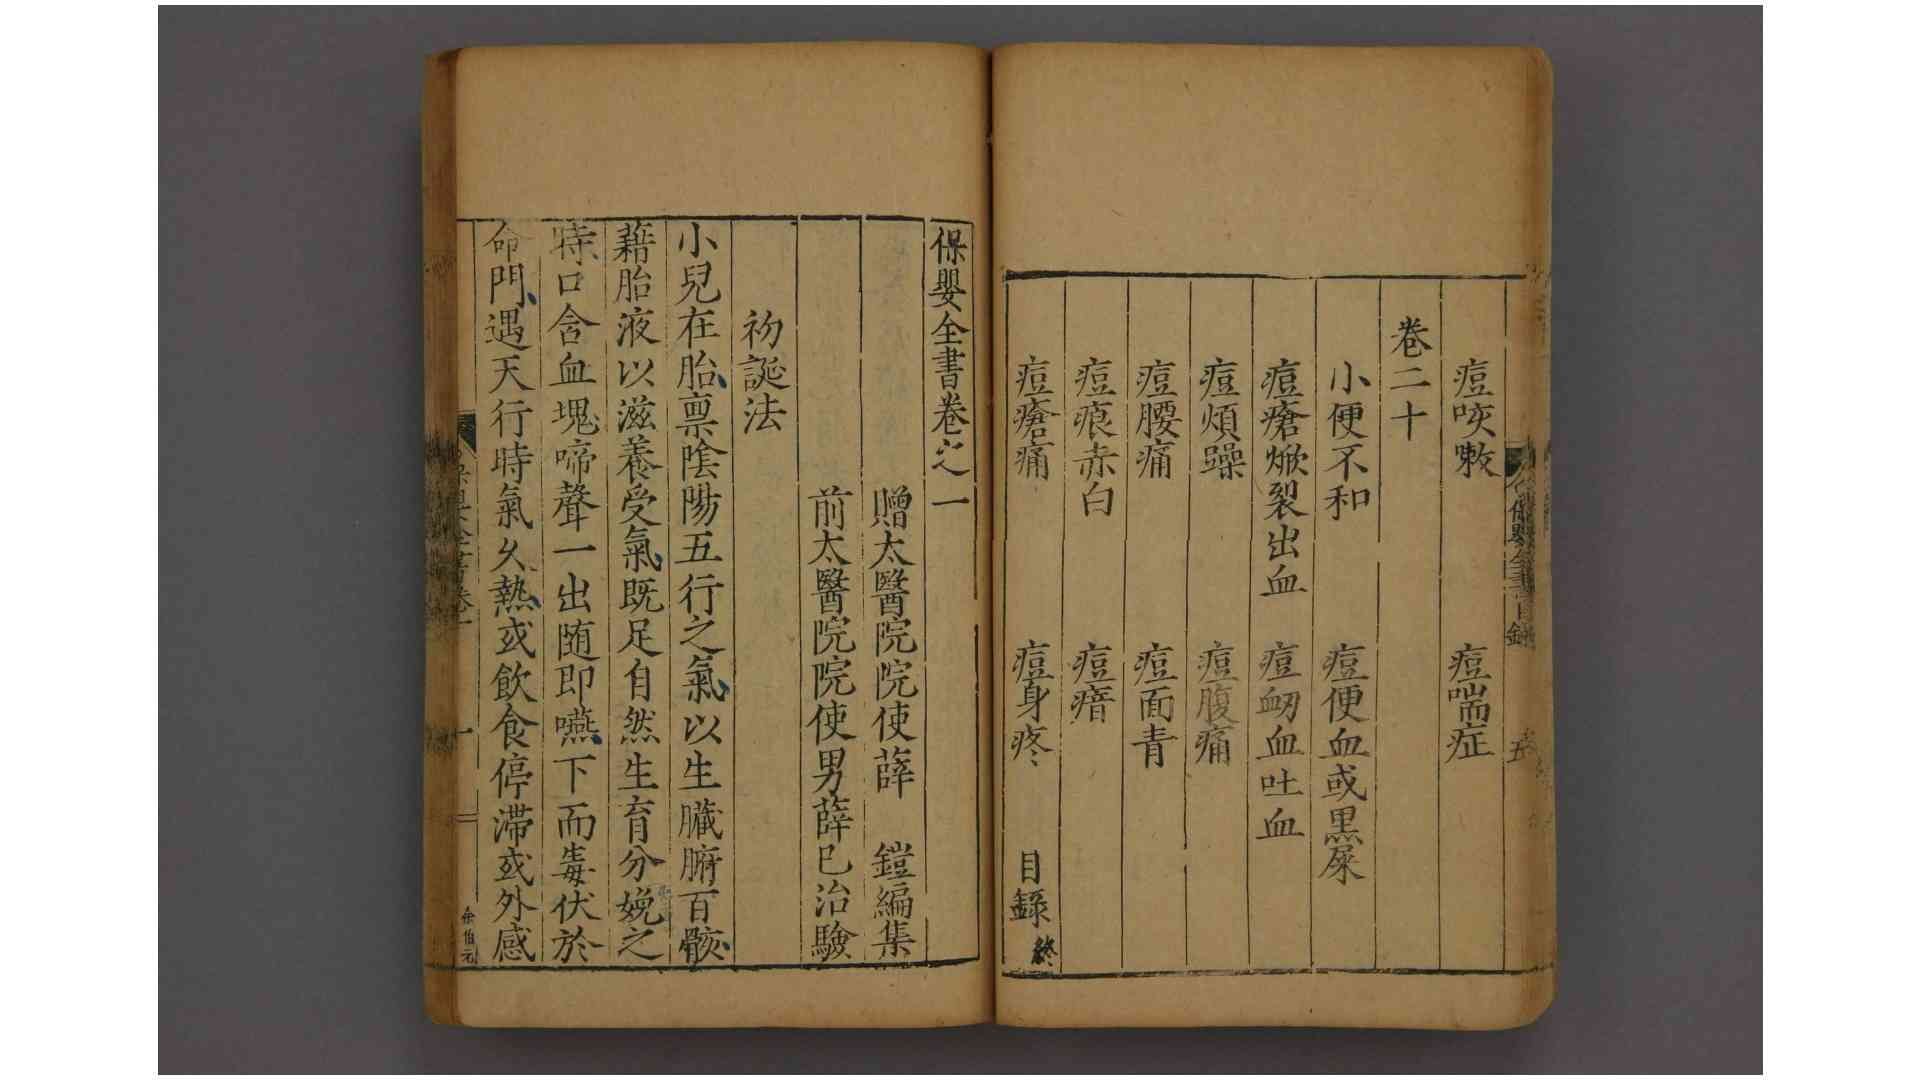 保嬰全書目録
五
痘咳嗽 痘喘症
卷二十
小便不和 痘便血或黒屎
痘瘡焮裂出血 痘衂血吐血
痘煩躁 痘腹痛
痘腰痛 痘面青
痘痕赤白 痘瘖
痘瘡痛 痘身疼 目録終
保嬰全書卷之一
贈太醫院院使薛 鎧編集
前太醫院院使男薛已治驗
初誕法
小兒在胎禀隂陽五行之氣以生臟腑百骸
藉胎液以滋養受氣既足自然生育分娩之
時口含血塊啼聲一出随即嚥下而毒伏於
命門遇天行時氣久熱或飲食停滞或外感
保嬰全書卷一
一
余伯元